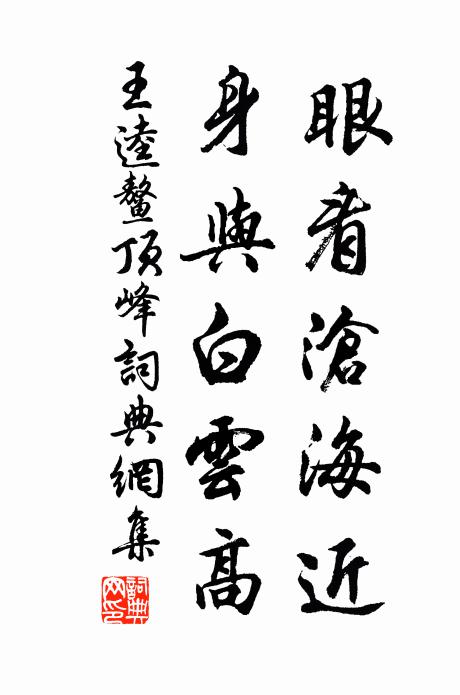 眼看滄海近
身與白雲高
王逵鰲頂峰詞典網集
詞典網印